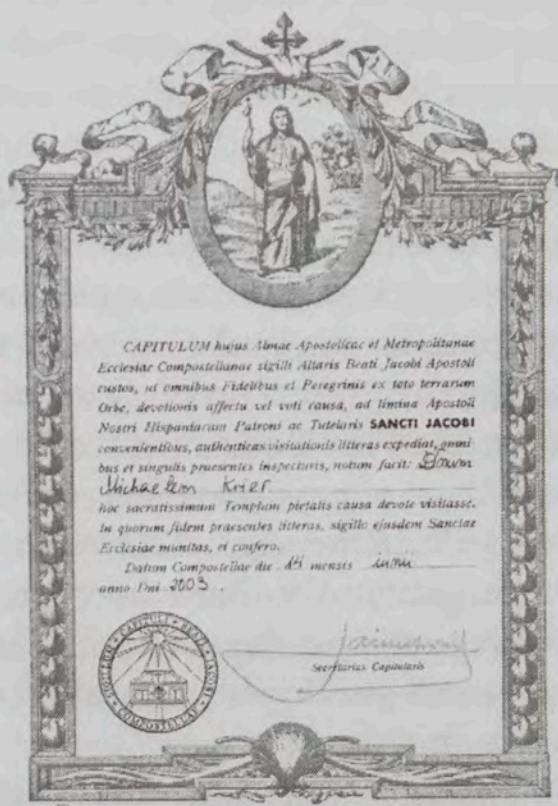 CAPITULUM hujus Almae Apostolicae et Metropolitanae
Ecclesiae Compostellanae sigilli Altaris Beati Jacobi Apostoli
custos, ut omnibus Fidelibus et Peregrinis ex toto terrarum
Orbe, devotionis affectu vel voti causa, ad limina Apostoli
Nostri Hispaniarum Patroni ac Tutelaris SANCTI JACOBI
convenientibus, authenticas visitationis litteras expediat, omni-
bus et singulis praesentes inspecturis, notum facit: Dnum
Michaelem Krier
hoc sacratissimum Templum pietatis causa devote visitasse.
In quorum fidem praesentes litteras, sigillo ejusdem Sanctae
Ecclesiae munitas, ei confero.
Datum Compostellae die 14 mensis iunii
anno Dni 2003.
Secretarius Capitularis
SIGILLUM CAPITULI BEATI JACOBI COMPOSTELLAE